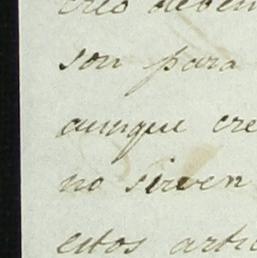 creo deben
son para
aunque cre
no sirven
estos artic